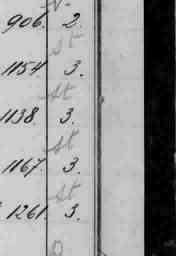 906. 2.
st
1154 3.
st
1138. 3.
st
1167. 3.
st
1261. 3.